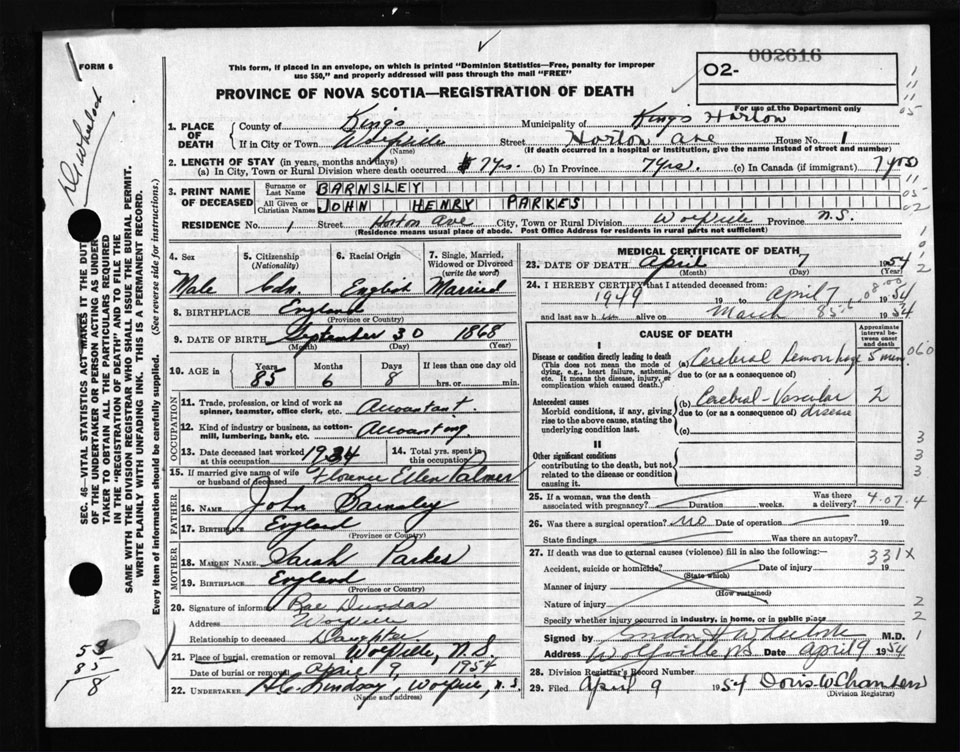 FORM 6
This form, if placed in an envelope, on which is printed "Dominion Statistics—Free, penalty for improper
use $50," and properly addressed will pass through the mail "FREE"
002616
O2-
For use of the Department only
PROVINCE OF NOVA SCOTIA—REGISTRATION OF DEATH
Dr. Wheelock
SEC. 46—VITAL STATISTICS ACT MAKES IT THE DUTY
OF THE UNDERTAKER OR PERSON ACTING AS UNDER-
TAKER TO OBTAIN ALL THE PARTICULARS REQUIRED
IN THE "REGISTRATION OF DEATH" AND TO FILE THE
SAME WITH THE DIVISION REGISTRAR WHO SHALL ISSUE THE BURIAL PERMIT.
WRITE PLAINLY WITH UNFADING INK. THIS IS A PERMANENT RECORD.
Every item of information should be carefully supplied. (See reverse side for instructions.)
1. PLACE OF DEATH County of Kings Municipality of Kings Horton
If in City or Town Wolfville Street Horton Ave House No. 1
(Name) (If death occurred in a hospital or institution, give the name instead of street and number)
2. LENGTH OF STAY (in years, months and days)
(a) In City, Town or Rural Division where death occurred 7 yrs. (b) In Province 7 yrs. (c) In Canada (if immigrant) 7 yrs
3. PRINT NAME OF DECEASED Surname or Last Name BARNSLEY
All Given or Christian Names JOHN HENRY PARKES
RESIDENCE No. 1 Street Horton Ave City, Town or Rural Division Wolfville Province N.S.
(Residence means usual place of abode. Post Office Address for residents in rural parts not sufficient)
4. Sex Male
5. Citizenship (Nationality) Cdn.
6. Racial Origin English
7. Single, Married, Widowed or Divorced (write the word) Married
8. BIRTHPLACE England
(Province or Country)
9. DATE OF BIRTH September 30 1868
(Month) (Day) (Year)
10. AGE in Years 85 Months 6 Days 8 If less than one day old hrs. or min.
OCCUPATION
11. Trade, profession, or kind of work as spinner, teamster, office clerk, etc. Accountant.
12. Kind of industry or business, as cotton-mill, lumbering, bank, etc. Accounting
13. Date deceased last worked at this occupation 1934 14. Total yrs. spent in this occupation
15. If married give name of wife or husband of deceased Florence Ellen Palmer
FATHER
16. NAME John Barnsley
17. BIRTHPLACE England
(Province or Country)
MOTHER
18. MAIDEN NAME Sarah Parkes
19. BIRTHPLACE England
(Province or Country)
20. Signature of informant Rae Dundas
Address Wolfville
Relationship to deceased Daughter.
21. Place of burial, cremation or removal Wolfville, N.S.
Date of burial or removal April 9, 1954
22. UNDERTAKER H.C. Lindsay, Wolfville, N.S.
(Name and address)
MEDICAL CERTIFICATE OF DEATH
23. DATE OF DEATH April 7 1954
(Month) (Day) (Year)
24. I HEREBY CERTIFY that I attended deceased from:
1949 19 to April 7 1954
and last saw h alive on March 1954
CAUSE OF DEATH
Approximate interval between onset and death
I
Disease or condition directly leading to death
(This does not mean the mode of dying, e.g., heart failure, asthenia, etc. It means the disease, injury, or complication which caused death.)
(a) Cerebral hemorrhage 5 min
due to (or as a consequence of)
Antecedent causes
Morbid conditions, if any, giving rise to the above cause, stating the underlying condition last.
(b) Cerebral-Vascular disease 2
due to (or as a consequence of)
(c)
II
Other significant conditions
contributing to the death, but not related to the disease or condition causing it.
25. If a woman, was the death associated with pregnancy? Duration weeks. Was there a delivery? 4-07-4
26. Was there a surgical operation? no Date of operation 19
State findings Was there an autopsy?
27. If death was due to external causes (violence) fill in also the following:
331X
Accident, suicide or homicide? Date of injury 19
(State which)
Manner of injury
(How sustained)
Nature of injury
Specify whether injury occurred in industry, in home, or in public place
Signed by Gordon H Wheelock M.D.
Address Wolfville NS Date April 9 1954
28. Division Registrar's Record Number
29. Filed April 9 1954 Doris W Chambers
(Division Registrar)